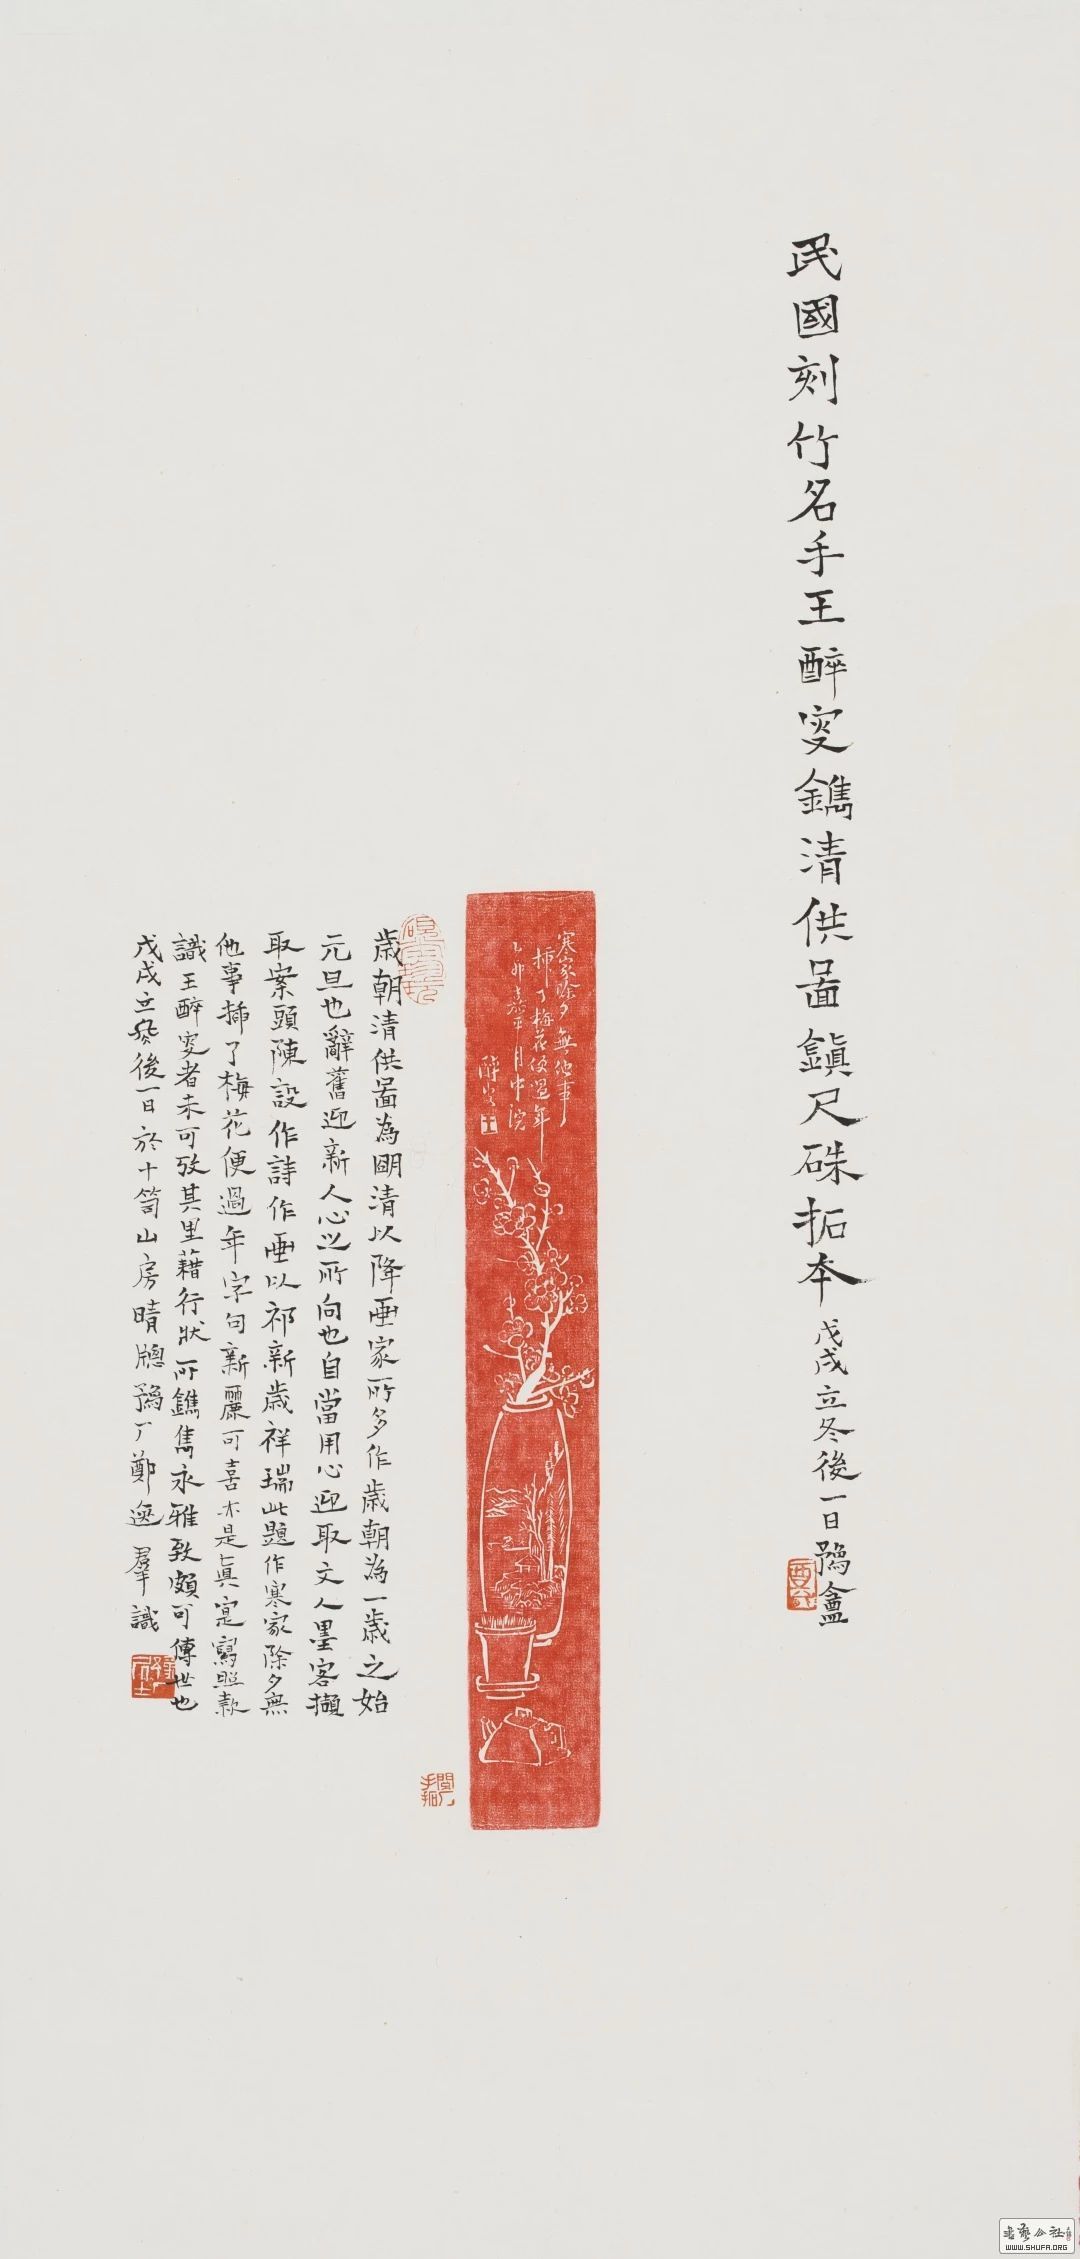 民國刻竹名手王醉叟鐫清供啚鎮尺硃拓本
戊戌立冬後一日豫盦
寒家除夕無他事
插了梅花便過年
乙卯嘉平月中浣
醉叟
歲朝清供啚為明清以降畫家所多作歲朝為一歲之始
元旦也辭舊迎新人心之所向也自當用心迎取文人墨客擷
取案頭陳設作詩作畫以祁新歲祥瑞此題作寒家除夕無
他事插了梅花便過年字句新麗可喜亦是真寔寫照款
識王醉叟者未可攷其里藉行狀所鐫雋永雅致頗可傳世也
戊戌立冬後一日於十笥山房晴牕豫厂鄭逸羣識
手拓
WWW.SHUFA.ORG